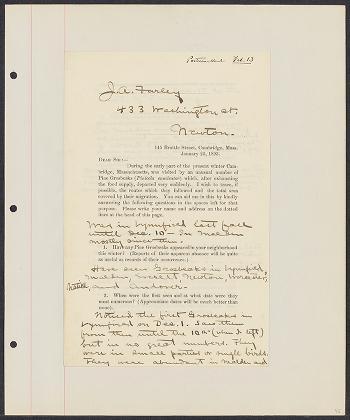 Postmarked Feb. 13
J.A. Farley
433 Washington St.
Newton.
145 Brattle Street, Cambridge, Mass.
January 25, 1893.
DEAR SIR:—
During the early part of the present winter Cam-
bridge, Massachusetts, was visited by an unusual number of
Pine Grosbeaks (Pinicola enucleator) which, after exhausting
the food supply, departed very suddenly. I wish to trace, if
possible, the routes which they followed and the total area
covered by their migration. You can aid me in this by kindly
answering the following questions in the spaces left for that
purpose. Please write your name and address on the dotted
lines at the head of this page.
Was in Lynnfield last fall
until Dec. 10 — In Malden
mostly since then.
1. Have any Pine Grosbeaks appeared in your neighborhood
this winter? (Reports of their apparent absence will be quite
as useful as records of their occurrence.)
Have seen Grosbeaks in Lynnfield,
Malden, Everett, Newton,
Natick and Andover.
2. When were the first seen and at what date were they
most numerous? (Approximate dates will be much better than
none).
Noticed the first Grosbeaks in
Lynnfield on Dec. 1. Saw them
from then until the 10th (when I left)
but in no great numbers. They
were in small parties or single birds.
They were abundant in Malden and